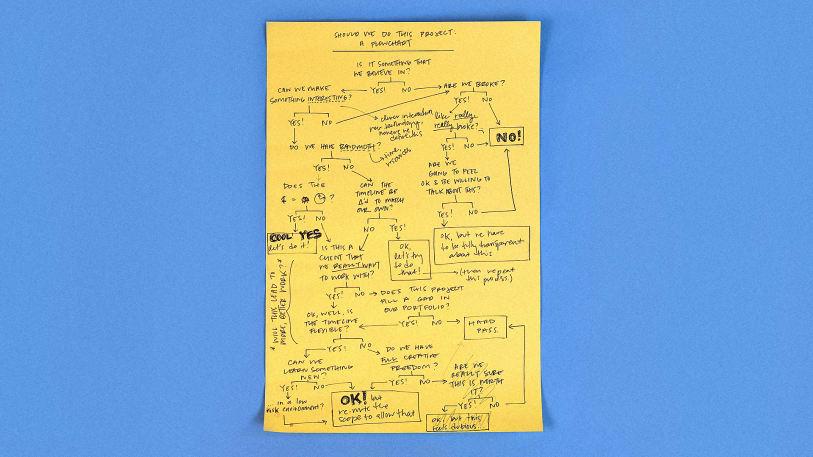 SHOULD WE DO THIS PROJECT:
A FLOWCHART
IS IT SOMETHING THAT
WE BELIEVE IN?
YES! NO
CAN WE MAKE
SOMETHING INTERESTING?
YES! NO
ARE WE BROKE?
YES! NO
like really
really broke?
YES! NO
NO!
clever interaction
new technology
DO WE HAVE BANDWIDTH?
YES! NO
time
ARE WE
GOING TO FEEL
OK & BE WILLING TO
TALK ABOUT THIS?
YES! NO
DOES THE
$ = ?
YES! NO
CAN THE
TIMELINE BE
Δ'd TO MATCH
OUR OWN?
NO YES!
COOL YES
let's do it!
OK,
let's try
to do
that!
(then repeat
this process.)
OK, but we have
to be fully transparent
about this
IS THIS A
CLIENT THAT
WE REALLY WANT
TO WORK WITH?
YES! NO
* WILL THIS LEAD TO
MORE, BETTER WORK? *
DOES THIS PROJECT
FILL A GAP IN
OUR PORTFOLIO?
YES! NO
HARD
PASS.
OK, WELL, IS
THE TIMELINE
FLEXIBLE?
YES! NO
CAN WE
LEARN SOMETHING
NEW?
YES! NO
...in a low
risk environment?
DO WE HAVE
FULL CREATIVE
FREEDOM?
YES! NO
ARE WE
REALLY SURE
THIS IS WORTH
IT?
YES! NO
OK! but
re-write the
scope to allow that
OK, but this
feels dubious...